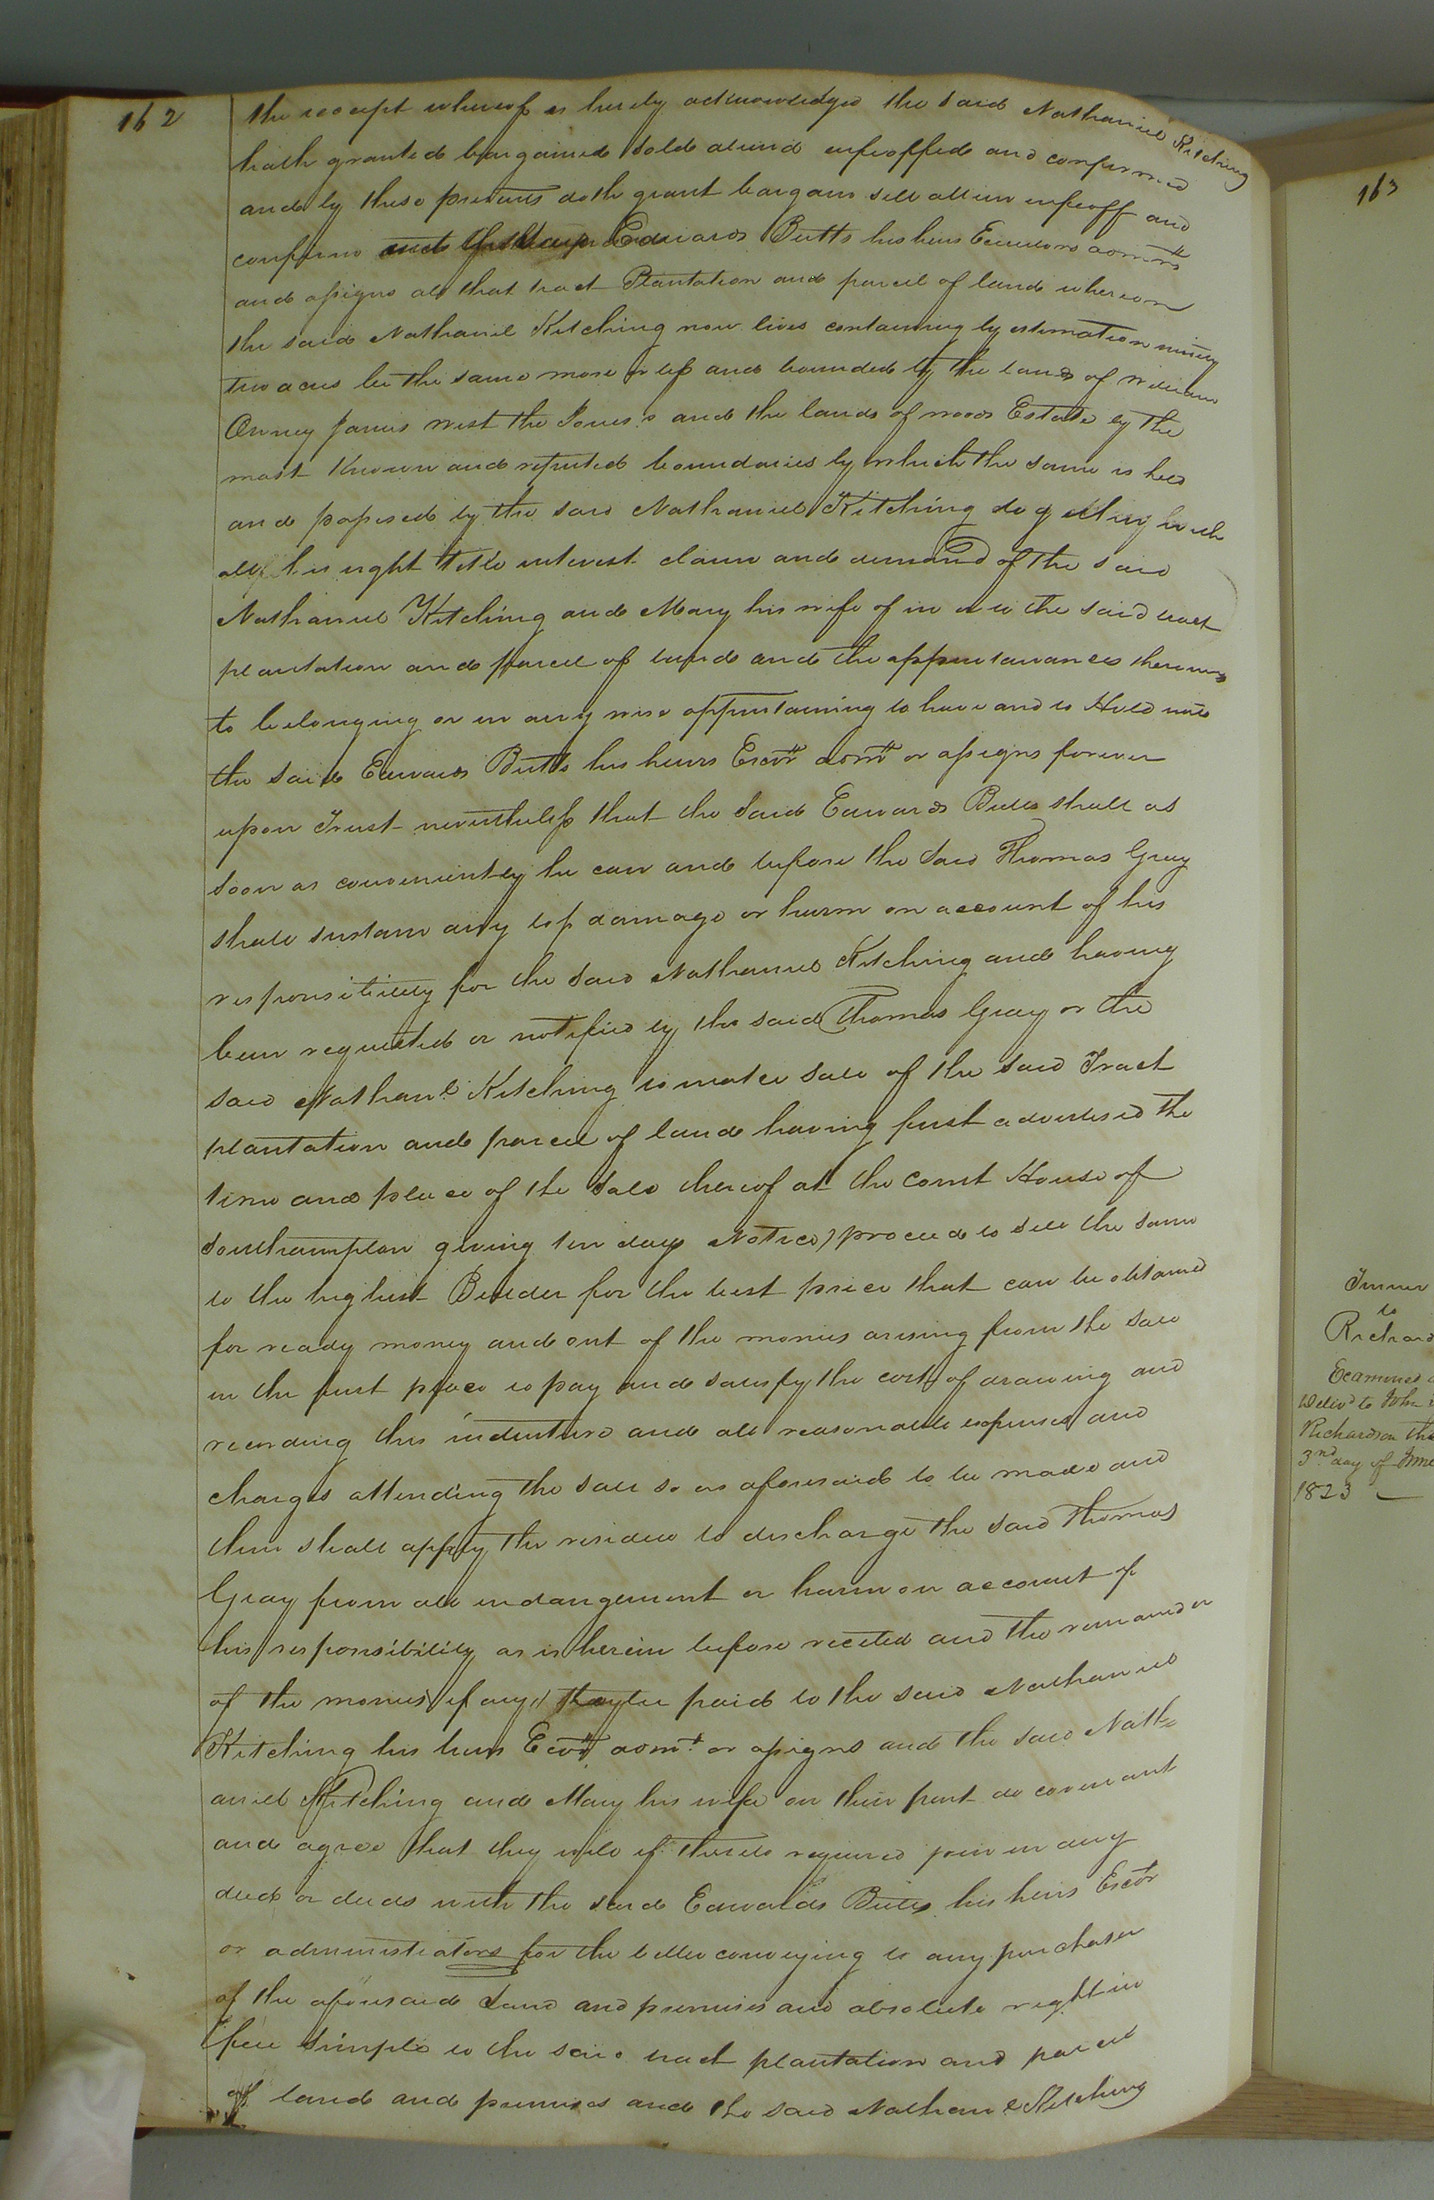 162
the receipt whereof is hereby acknowledged the said Nathaniel Kitching
hath granted bargained sold aliend enfeoffed and confirmed
and by these presents doth grant bargain sell alien enfeoff and
confirm Edwards Butts his heirs Executors admrs
and assigns all that tract Plantation and parcel of land whereon
the said Nathaniel Kitching now lives containing by estimation ninety
two acres be the same more or less and bounded by the lands of William
west the Jones's and the lands of woods Estate by the
most Known and reputed boundaries by which the same is held
and possessed by the said Nathaniel Kitching together with
all his right title interest claim and demand of the said
Nathaniel Kitching and Mary his wife of in or to the said tract
plantation and parcel of land and the appurtanances thereunto
to belonging or in any wise appurtaining to have and to Hold unto
the said Edwards Butts his heirs Exors admrs or assigns forever
upon Trust nevertheless that the said Edwards Butts shall as
soon as conveniently he can and before the said Thomas Gray
shall sustain any loss damage or harm on account of his
responsibility for the said Nathaniel Kitching and having
been requested or notified by the said Thomas Gray or the
said Nathanl Kitching to make sale of the said Tract
plantation and parcel of land having first advertised the
time and place of the Sale thereof at the Court House of
Southampton giving ten days Notice) proceed to sell the same
to the highest Bidder for the best price that can be obtained
for ready money and out of the monies arising from the sale
in the first place to pay and satisfy the cost of drawing and
recording this indenture and all reasonable expenses and
charges attending the sale so as aforesaid to be made and
then shall apply the residue to discharge the said Thomas
Gray from all endangement or harm on account of
his responsibility as is herein before recited and the remainder
of the monies if any be paid to the said Nathaniel
Kitching his heirs Exors admrs or assigns and the said Nath
aniel Kitching and Mary his wife on their part do covenant
and agree that they will if thereto required join in any
deed or deeds with the said Edwards Butts his heirs Exors
or administrators for the better conveying to any purchaser
of the aforesaid Land and premises and absolute right in
fee simple to the said tract plantation and parcel
of land and premises and the said Nathanl Kitching
163
Turner
to
Richard
Examined
Delivd to John
Richardson
3rd day of June
1823